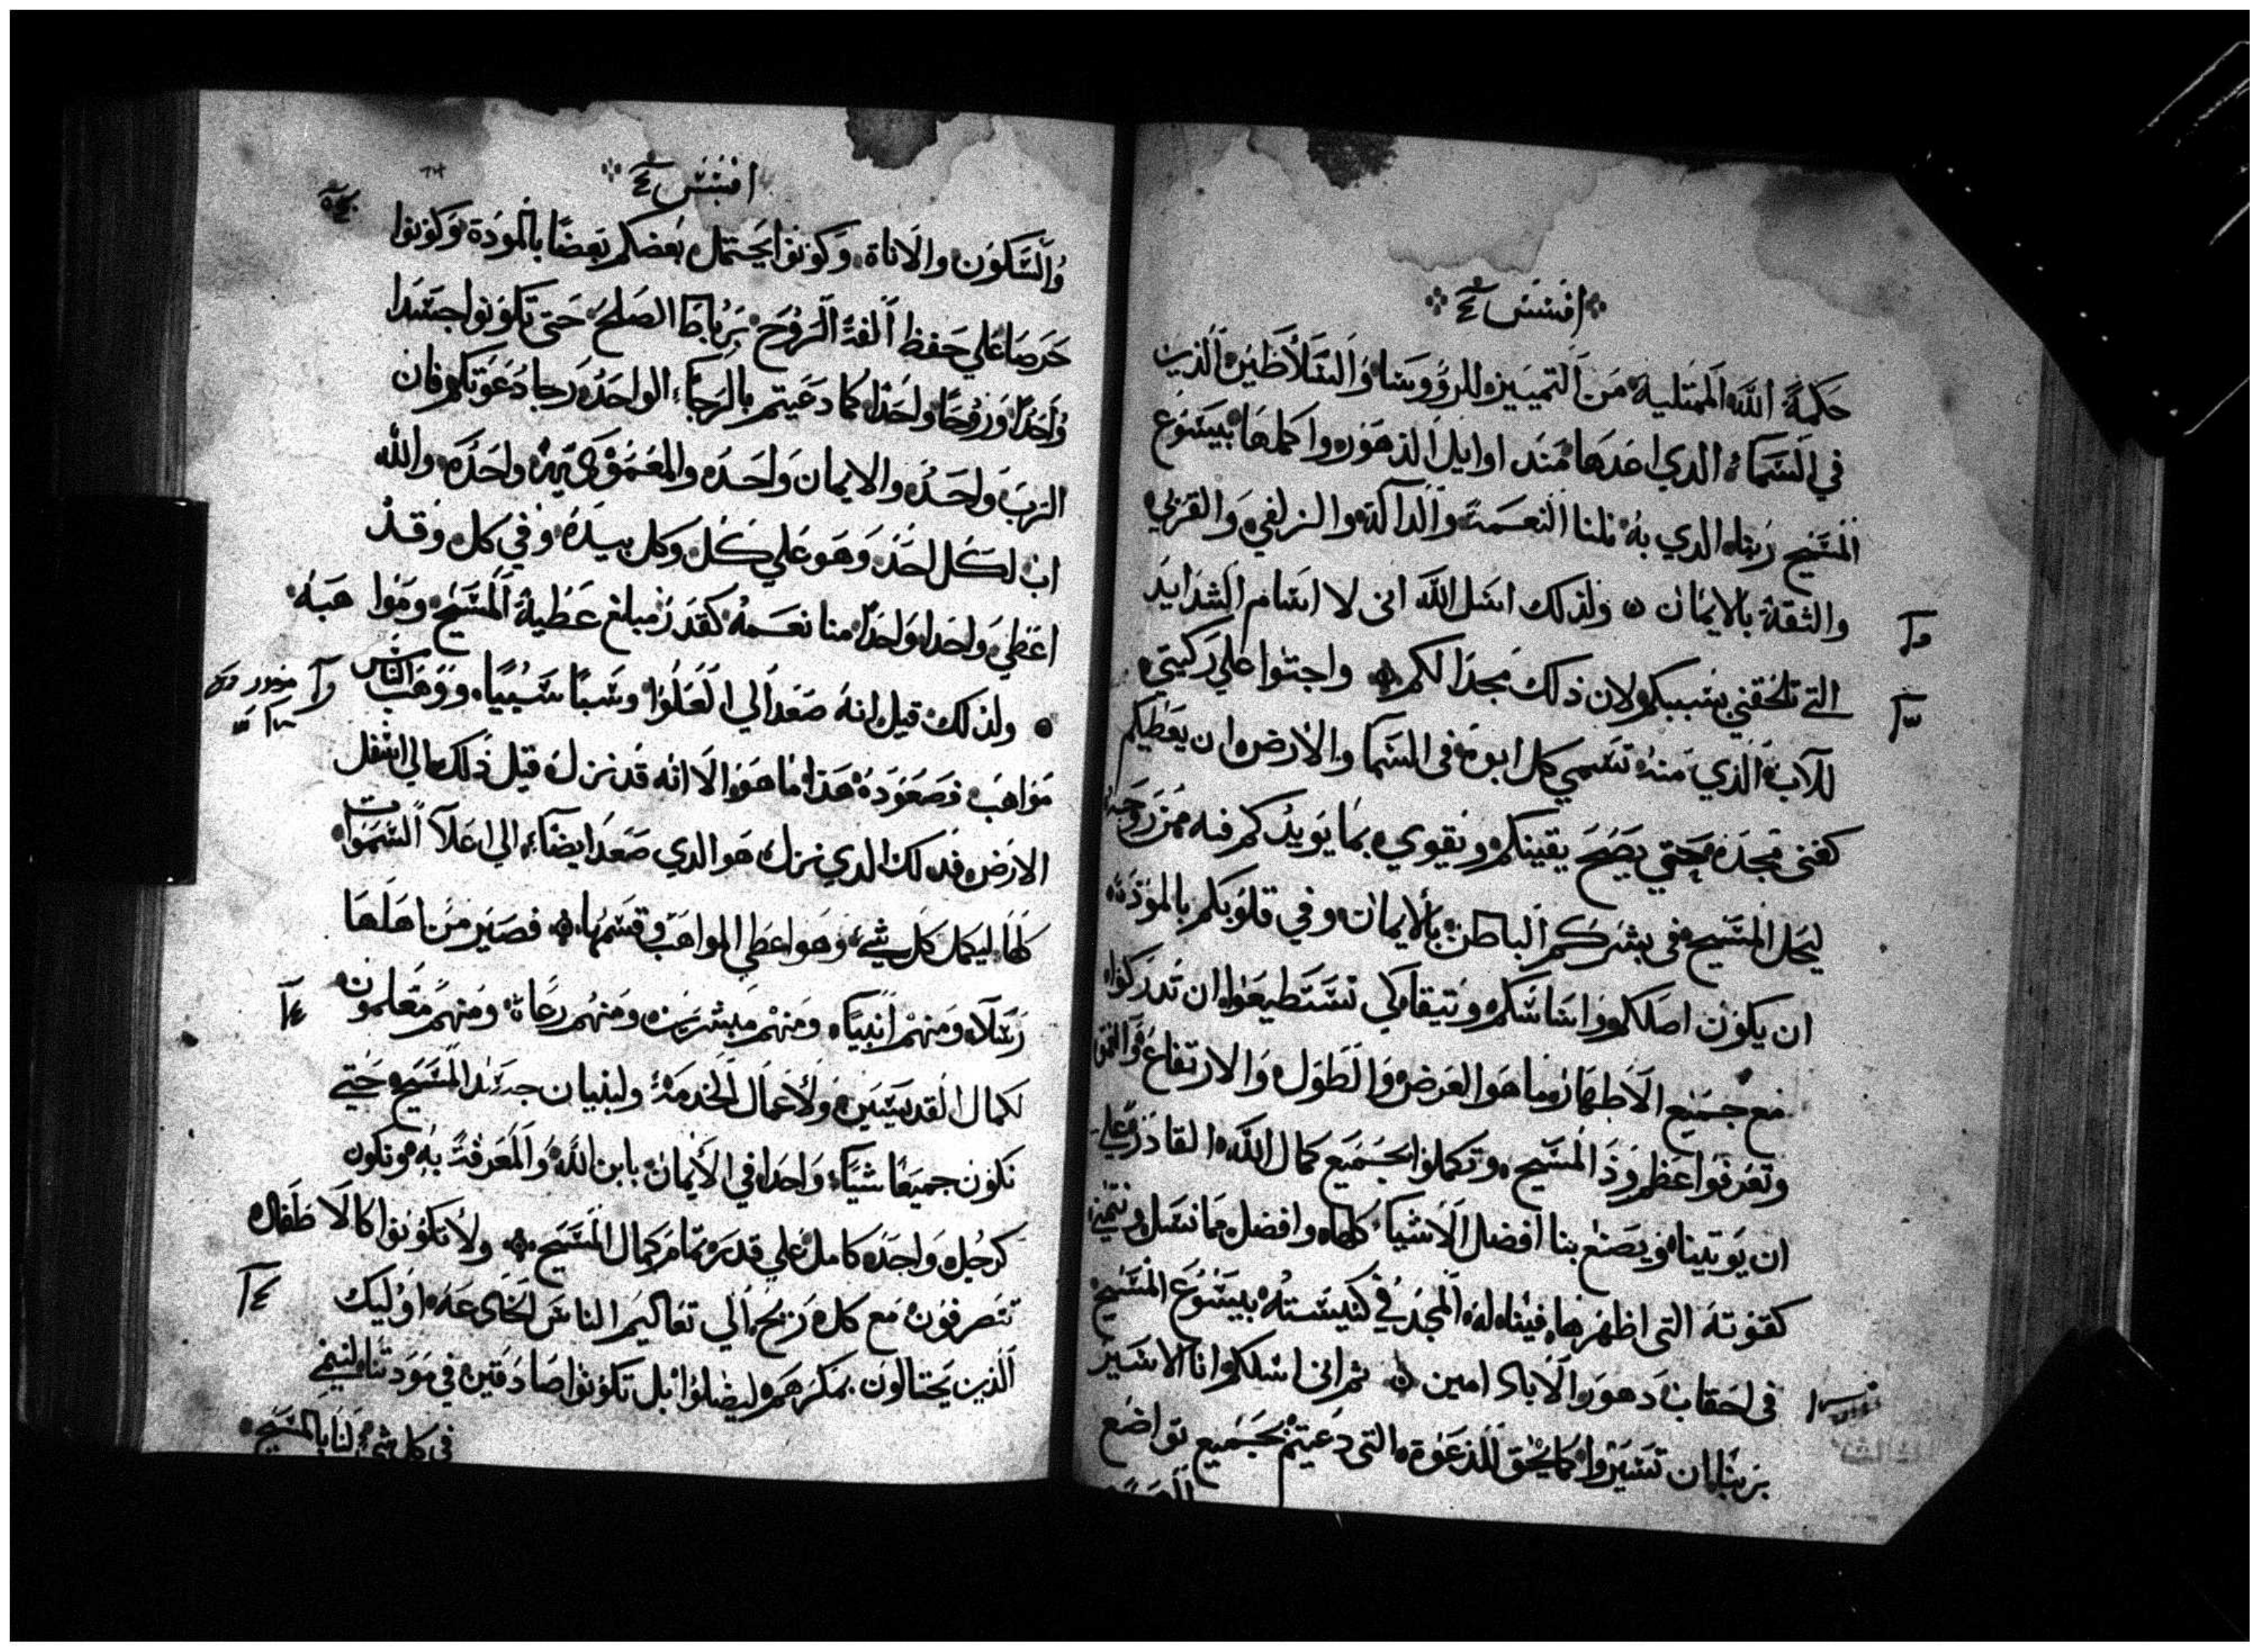 افسس
حكمة الله الممتلية من التمييز للرووسا والسلاطين الذين
في السماء الدي اعدها مند اوايل الدهور واكملها بيسوع
المسيح ربنا الدي به نلنا النعمة والدالة والزلفي والقربي
والثقة بالايمان ولذلك اسل الله انى لا اسام الشدايد
التي تلحقني بسببكم لان ذلك مجدا لكم واجتوا علي ركبتي
للاب الذي منه تسمي كل ابوة في السما والارض ان يعطيكم
كغنى مجده حتي يصح يقينكم ويقوي بما يويدكم فيه من روحه
ليحل المسيح في بشركم الباطن بالايمان وفي قلوبكم بالمودة
ان يكون اصلكم واساسكم وتيقا كي تستطيعوا ان تدركوا
مع جميع الاطهار وما هو العرض والطول والارتفاع والعمق
وتعرفوا عظم ود المسيح وتكملوا بجميع كمال الله القادر علي
ان يوتينا ويصنع بنا افضل الاشياء كلها وافضل مما نسل ونتمني
كقوته التى اظهرها فينا له المجد في كنيسته بيسوع المسيح
في احقاب دهور الاباد امين ثم انى اسلكم انا الاسير
بربنا ان تسيروا كما يحق للدعوة التى دعيتم بجميع تواضع
افسس ٤
والسكون والاناة وكونوا يحتمل بعضكم بعضا بالمودة وكونوا
حرصا علي حفظ الفة الروح برباط الصلح حتى تكونوا جسدا
واحدا وروحا واحدا كما دعيتم بالرجاء الواحد رجا دعوتكم فان
الرب واحد والايمان واحد والمعمودية واحدة والله
اب لكل احد وهو علي كل وكل بيده وفي كل وقد
اعطي واحدا واحدا منا نعمة كقدر مبلغ عطية المسيح ومواهبه
ولذلك قيل انه صعد الي العلوا وسبا سبيا ووهب الناس
مواهب فصعوده هذا ما هو الا انه قد نزل قبل ذلك الي اسفل
الارض فدلك الدي نزل هو الدي صعد ايضا الي اعلا السموات
كلها ليكمل كل شي وهو اعطي المواهب وقسمها فصير من اهلها
رسلا ومنهم انبيا ومنهم مبشرين ومنهم رعاة ومنهم معلمون
لكمال القديسين ولاعمال الخدمة ولبنيان جسد المسيح حتي
نكون جميعا شيا واحدا في الايمان بابن الله والمعرفة به ونكون
كرجل واحد كامل علي قدر تمام كمال المسيح ولا تكونوا كالاطفال
تتصرفون مع كل ريح الي تعاليم الناس الخادعة اوليك
الذين يحتالون بمكرهم ليضلوا بل تكونوا صادقين في مودتنا لينمي
في كل شي لنا بالمسيح